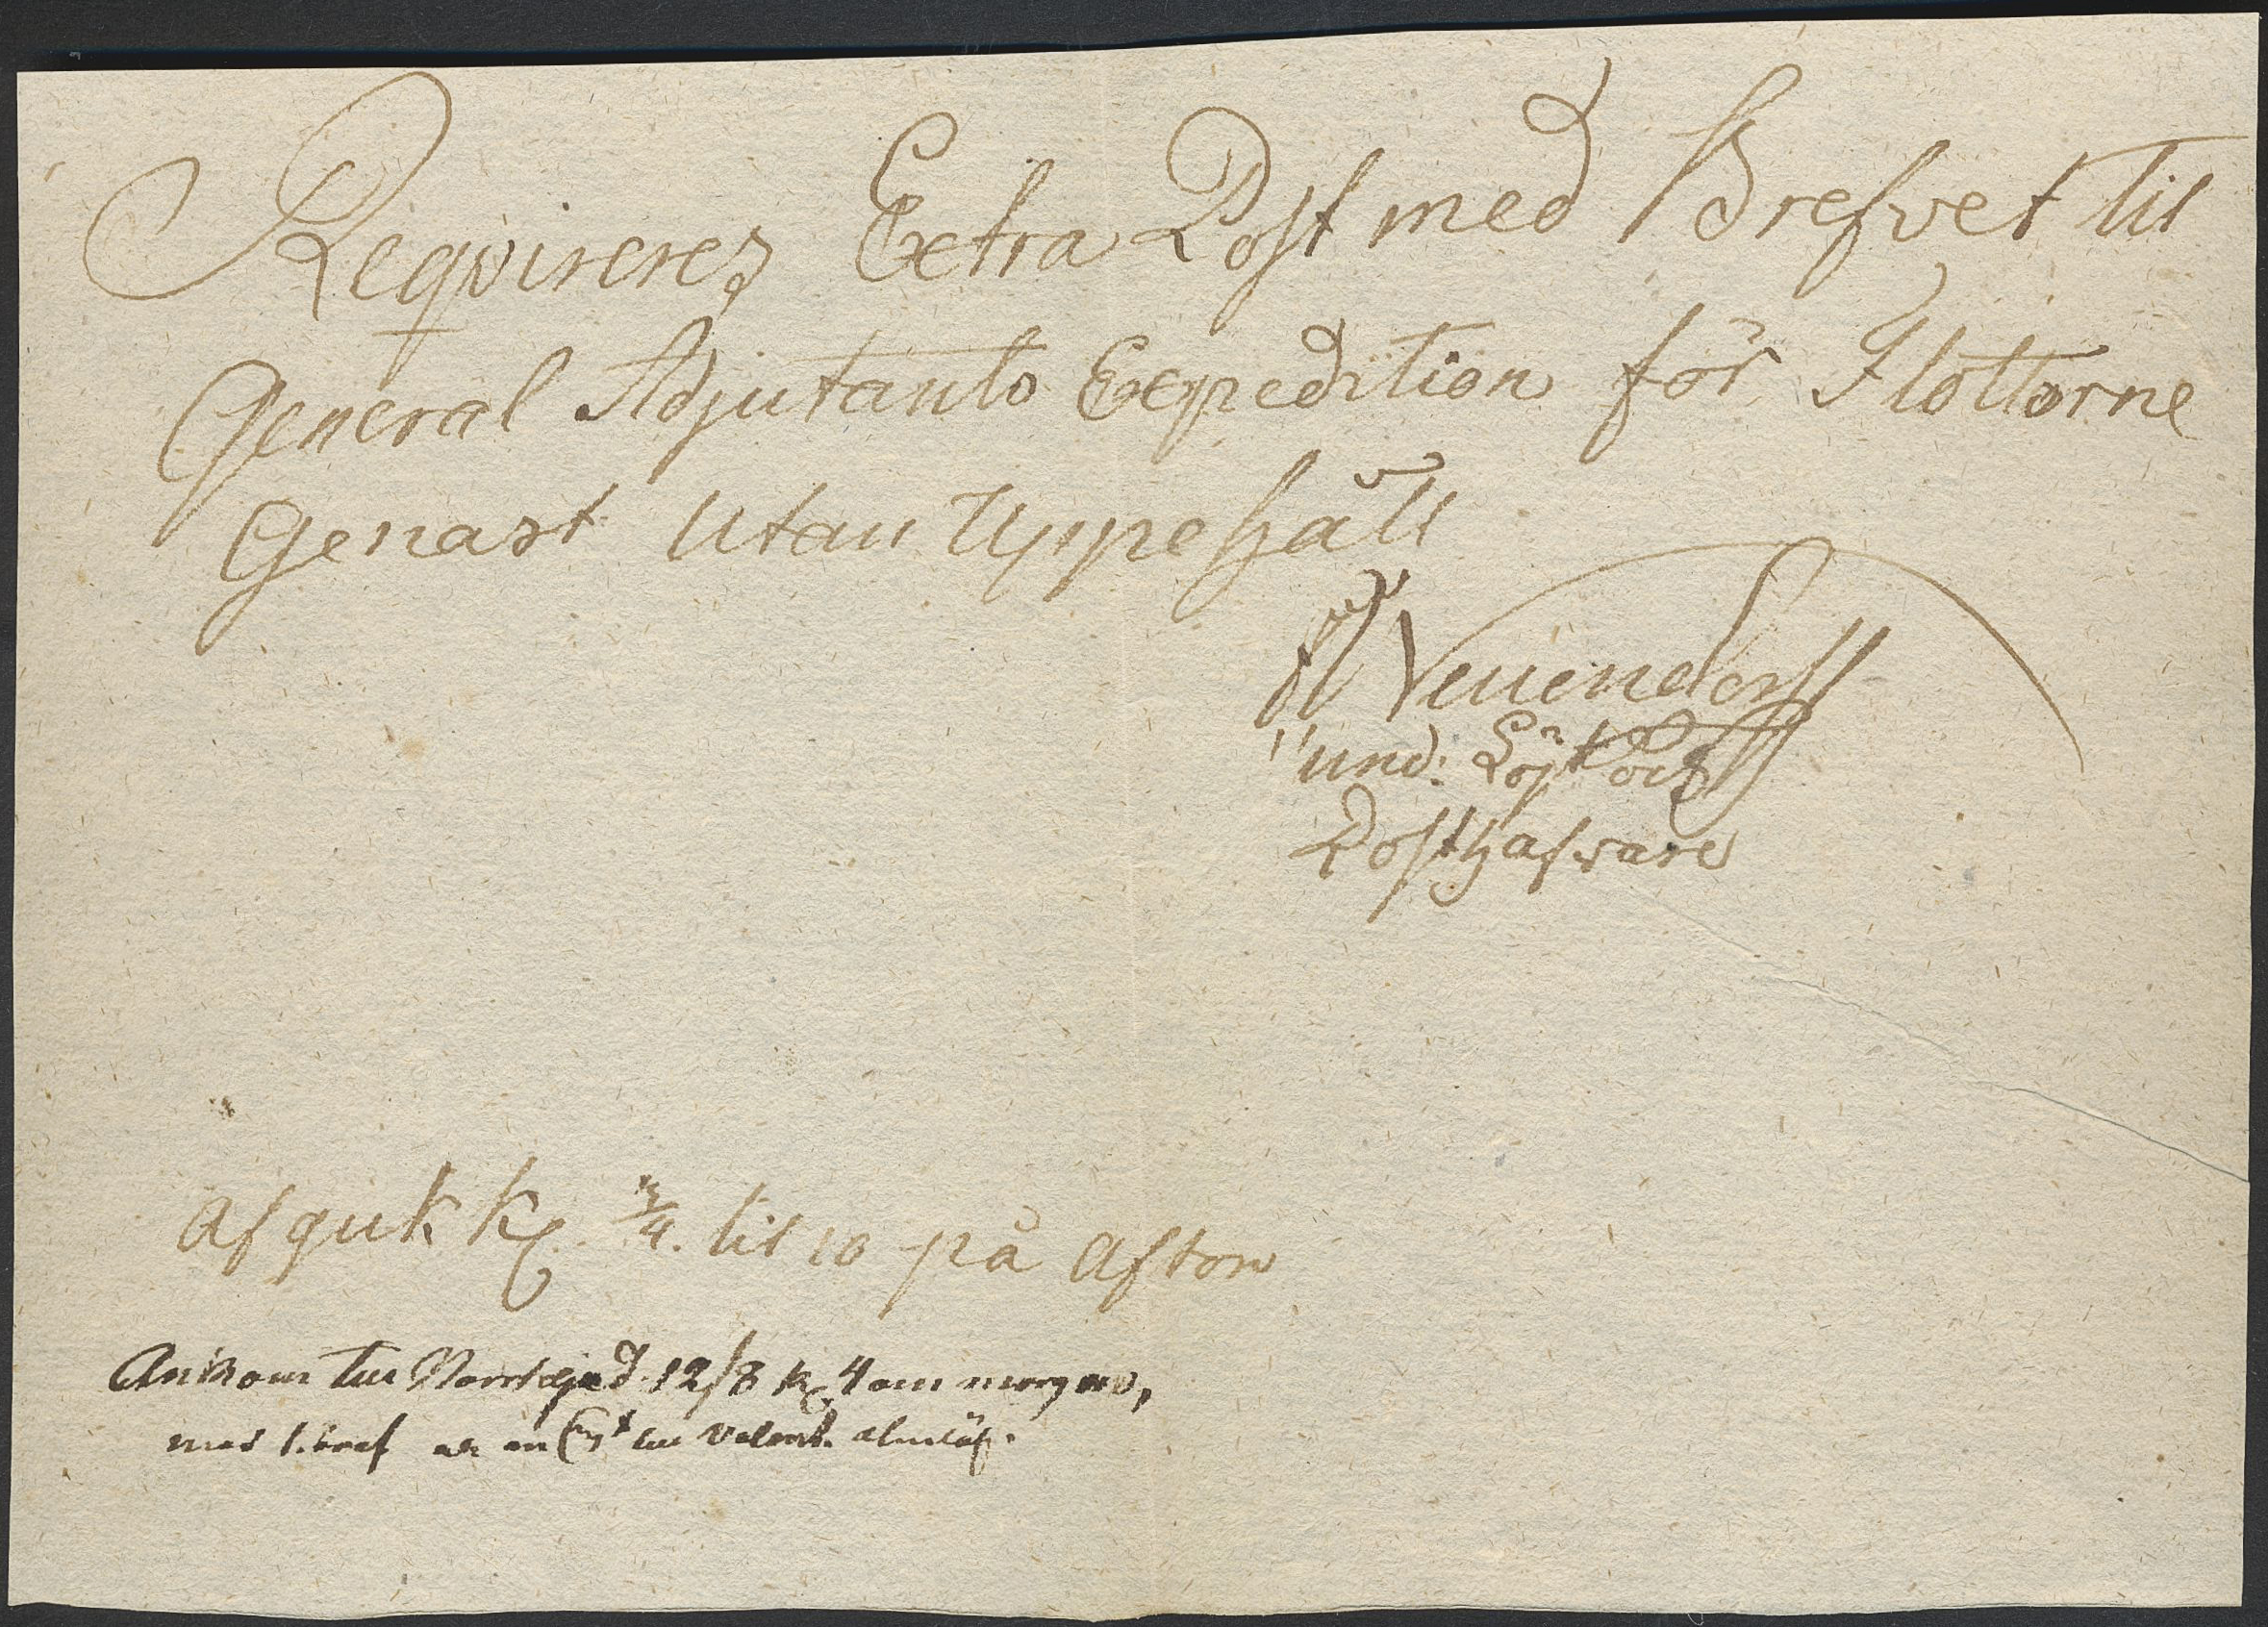 Reqvireres Extra Post med Brefvet til
General Adjutants Expedition för Flottorne
Genast Utan Uppehåll
Neuendorff
und: Löjt och
Posthafvare
Afguk Kl. 3/4. til 10 på Afton
Ankom till Norrtelje d. 12/8 kl. 4 om morgon,
med 1. bref